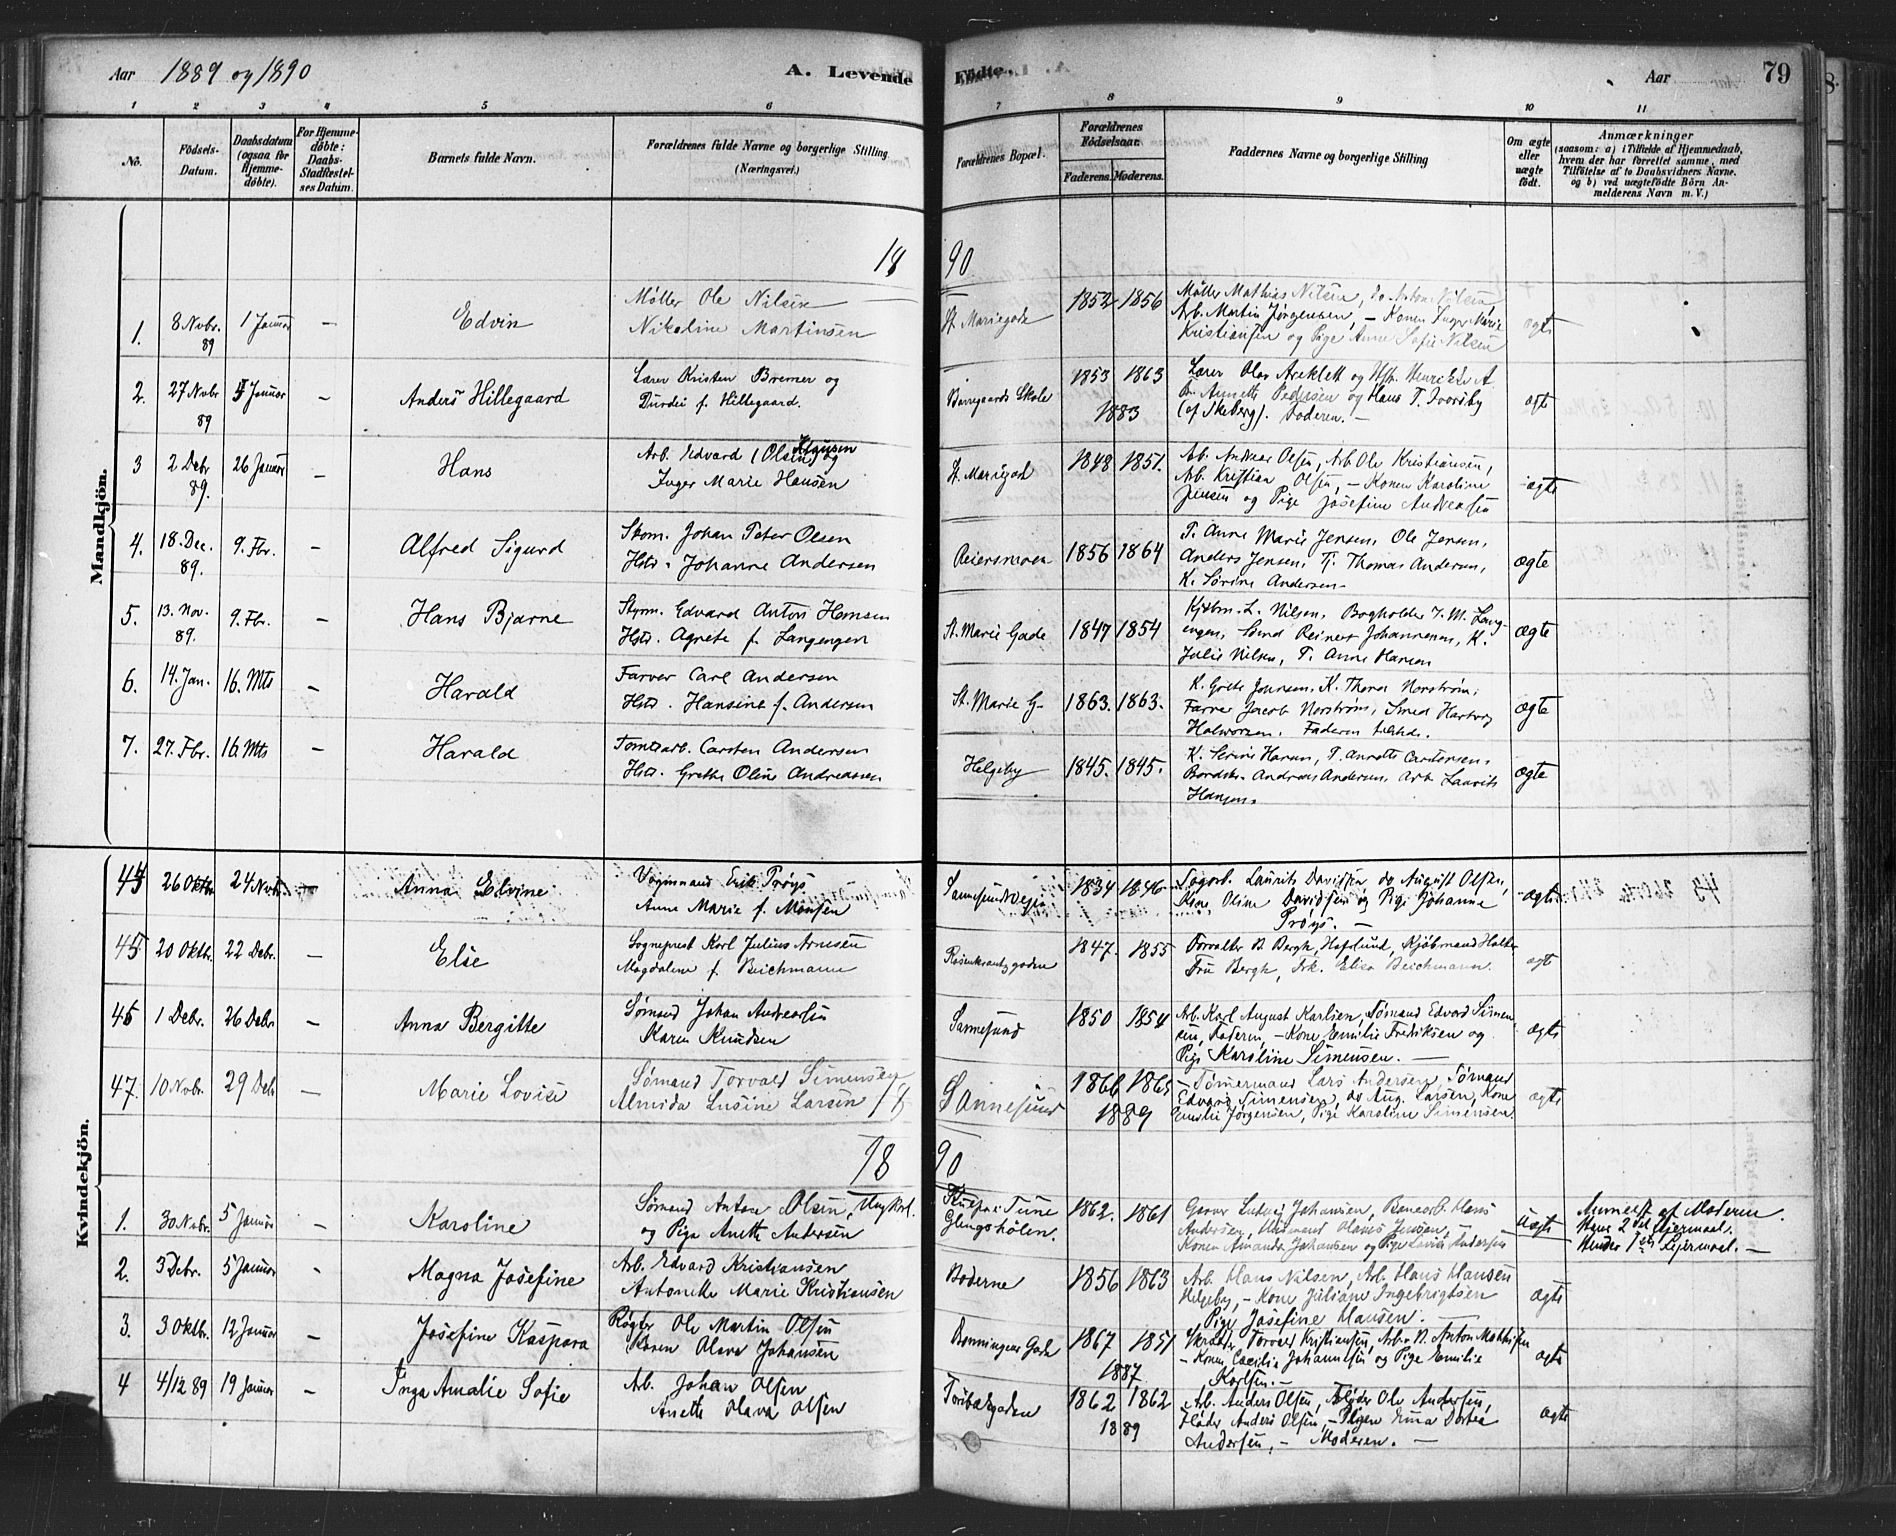 Aar 1889 og 1890
A. Levende Födte.
Aar
79
1 2 3 4 5 6 7 8 9 10 11
No.
Födsels-Datum.
Daabsdatum (ogsaa for Hjemme-döbte).
For Hjemme-döbte: Daabs-Stadfæstel-ses Datum.
Barnets fulde Navn.
Forældrenes fulde Navne og borgerlige Stilling (Næringsvei.)
Forældrenes Bopæl.
Forældrenes Födselsaar.
Faderens. Moderens.
Faddernes Navne og borgerlige Stilling
Om ægte eller uægte födt.
Anmærkninger
(saasom: a) i Tilfælde af Hjemmedaab,
hvem der har forrettet samme, med
Tilföielse af to Daabsvidners Navne.
og b) ved uægtefödte Börn An-
melderens Navn m. V.)
Mandkjön.
18 90
1. 8 Novbr. 89 1 Januar — Edvin
Møller Ole Nilsen
Nikoline Martinsen
St. Mariegade 1852 1856
Møller Mathias Nilsen, do Anton Nilsen,
Arb. Martin Jørgensen, — Konen Inger Marie
Kristiansen og Pige Anne Sofie Nilsen
ægte
2. 27 Novbr 89 5 Januar — Anders Hillegaard
Lærer Kristen Bremer og
Durdei f. Hillegaard.
Borregaards Skole 1853 1863
1883
Lærer Olav Areklett og
Annette Pedersen og Hans T.
(af Skeberg). Faderen. —
ægte
3 2 Debr 89. 26 Januar — Hans
Arb. Edvard (Olsen) Hansen og
Inger Marie Hansen
St. Mariegad 1848 1851.
Arb. Andreas Olsen, Arb. Ole Kristiansen,
Arb. Kristian Olsen, — Konen Karoline
Jensen og Pige Josefine Andreasen
ægte
4. 18. Dec. 89. 9. Fbr. — Alfred Sigurd
Skom. Johan Peter Olsen
Hstr. Johanne Andersen
Reiersmoen 1856 1864
P. Anne Marie Jensen, Ole Jensen,
Anders Jensen, Tj. Thomas Andersen,
K. Sørine Andersen.
ægte
5. 13. Nov. 89. 9. Fbr. — Hans Bjarne
Styrm. Edvard Anton Hansen
Hstr. Agnete f. Langengen
St. Marie Gade 1847 1854
Kjøbm. L. Nilsen, Bogholder J. M. Lang-
engen, Smed Reinert Johannesen, K.
Julie Nilsen, P. Anne Hansen
ægte
6. 14. Jan. 16. Mts — Harald
Farver Carl Andersen
Hstr. Hansine f. Andersen
St. Marie G. 1863. 1863.
K. Grete Jonnsen, K. Thora Norstrøm,
Farver Jacob Norstrøm, Smed Hartvig
Halvorsen. Faderen tilstede.
ægte
7. 27. Fbr. 16 Mts — Harald
Tomtearb. Carsten Andersen
Hstr. Grethe Oline Andreassen
Helgeby 1845. 1845.
K. Serine Hansen, P. Annette Carstensen,
Andreas Andersen, Arb. Laurits
Hansen.
ægte
Kvindekjön.
44 26 Oktbr. 24 Novbr. — Anna Elvine
Vognmand Erik Prøys
Anne Marie f. Monsen
Sannesundsvejen 1834 1846
Sagarb. Laurits Davidsen, do August Olsen,
Kone Oline Davidsen og Pige Johanne
Prøys. —
ægte
45 20 Oktbr. 22 Debr. — Else
Sogneprest Karl Julius Arnesen
Magdalene f. Beichmann
Rosenkrantzgaden 1847. 1855
Forvalter B. Bergh, Hafslund, Kjøbmand Holter
Fru Bergh, Frk. Elisa Beichmann.
ægte
46 1 Debr. 26 Debr — Anna Bergitte
Sømand Johan Andreasen
Karen Knudsen
Sannesund 1850 1854
Arb. Karl August Karlsen, Sømand Edvard Simen-
sen, Faderen, — Kone Emilie Fredriksen og
Pige Karoline Simensen. —
ægte
47. 10 Novbr. 29 Debr — Marie Lovise
Sømand Torvald Simensen
Almida Lusine Larsen
Sannesund 1866 1865
1889
— Tømermand Lars Andersen, Sømand
Edvard Simensen, do Aug. Larsen, Kone
Emilie Jørgensen, Pige Karoline Simensen.
ægte
18 90
1. 30 Novbr. 5 Januar — Karoline
Sømand Anton Olsen, Ungkarl
og Pige Anette Andersen
Tune
Glengshølen. 1862. 1861
Garver Ludvig Johansen, Banearb. Hans
Andersen, Hans Jensen, —
Konen Amanda Johansen og Pige Lovise Andersen
Uægte
Anmeldt af Moderen.
Hans 2det Leiermaal.
Hendes 1ste Leiermaal. —
2. 3 Debr. 5 Januar — Magna Josefine
Arb. Edvard Kristiansen
Antonette Marie Kristiansen
Boderne 1856 1863
Arb. Hans Nilsen, Arb. Hans Hansen
Helgeby, — Kone Juliane Ingebrigtsen
Pige Josefine Hansen. —
ægte
3. 3 Oktbr. 12 Januar — Josefine Kaspara
Røgter Ole Martin Olsen
Karen Olava Johansen
Gade 1867 1851
1887
Skrædder Torvald Kristiansen, Arb. Anton Mathisen
— Konen Cecilie Johannesen og Pige Emilie
Karlsen. —
ægte
4 4/12 89 19 Januar — Inga Amalie Sofie
Arb. Johan Olsen
Anette Olava Olsen
1862 1862
1889
Arb. Anders Olsen, Fløder Ole Andersen,
Fløder Anders Olsen, — Pigen Emma Dortea
Andersen, — Moderen. —
ægte